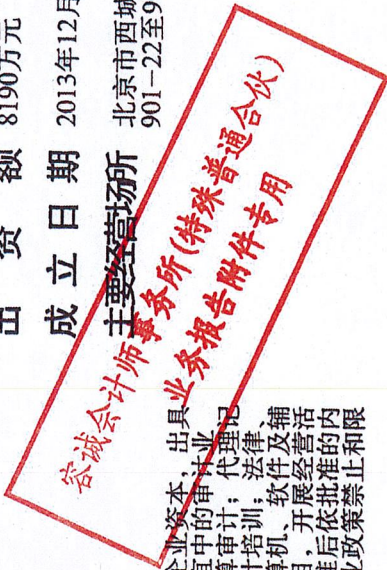 出资额 8190万元
成立日期 2013年12月
主要经营场所 北京市西城
901-22至9
容诚会计师事务所(特殊普通合伙)
业务报告附件专用
企业资本、出具
宜中的审计业
算审计；代理记
计培训；法律、
算机、软件及辅
目，开展经营活
准后依批准的内
业政策禁止和限